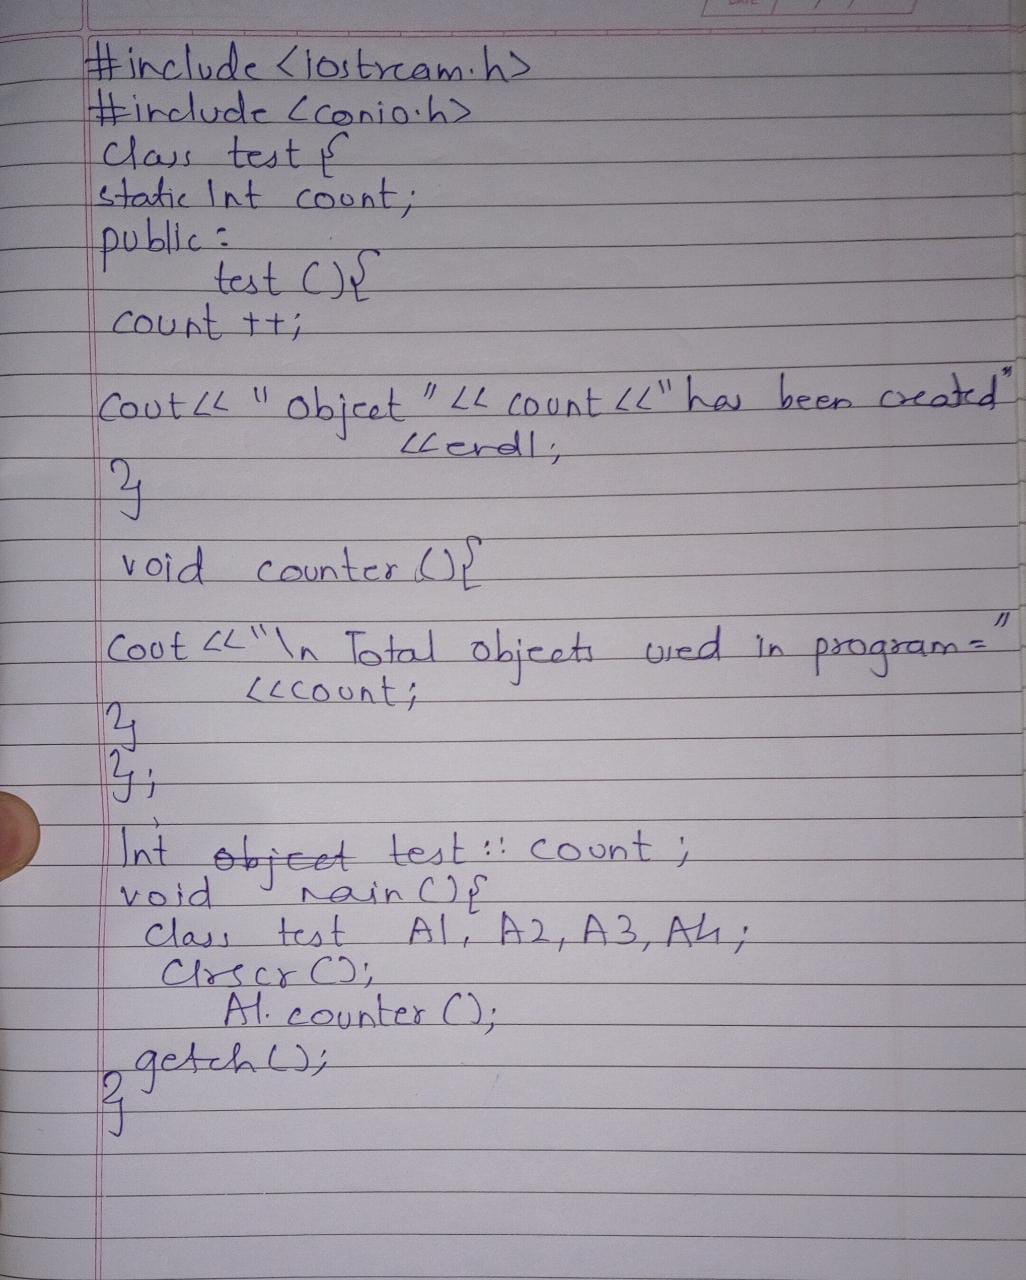 #include <iostream.h>
#include <conio.h>
Class test {
static Int count;
public:
test (){
count ++;
Cout<< " object " << count <<" has been created"
<<endl;
}
void counter (){
Cout <<"\n Total objects used in program="
<<count;
}
};
Int object test :: count ;
void main (){
Class test A1, A2, A3, A4;
Clrscr ();
A1. counter ();
getch ();
}